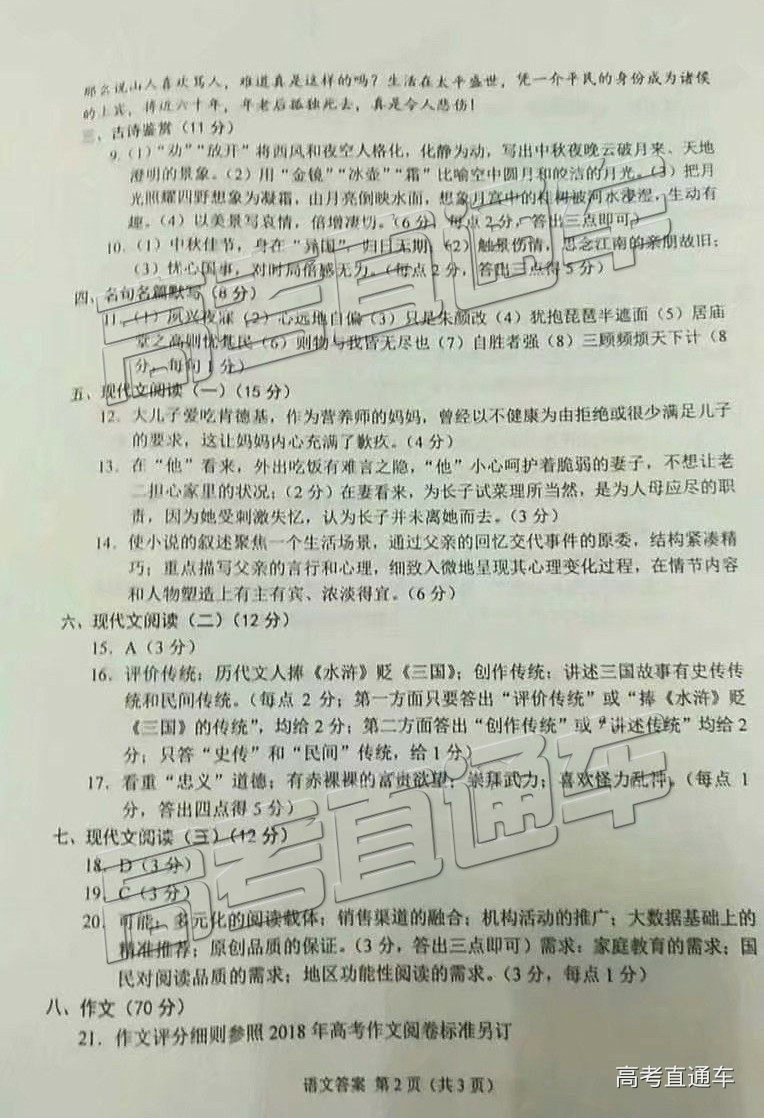 那么说山人喜欢骂人，难道真是这样的吗？生活在太平盛世，凭一介平民的身份成为诸侯
的上宾，将近六十年，年老后孤独死去，真是令人悲伤！
三、古诗鉴赏（11 分）
9.（1）“劝”“放开”将西风和夜空人格化，化静为动，写出中秋夜晚云破月来、天地
澄明的景象。（2）用“金镜”“冰壶”“霜”比喻空中圆月和皎洁的月光。（3）把月
光照耀四野想象为凝霜，由月亮倒映水面，想象月宫中的桂树被河水浸湿，生动有
趣。（4）以美景写哀情，倍增凄切。（6 分，每点 2 分，答出三点即可）
10.（1）中秋佳节，身在“异国”，归日无期；（2）触景伤情，思念江南的亲朋故旧；
（3）忧心国事，对时局倍感无力。（每点 2 分，答出三点得 5 分）
四、名句名篇默写（8 分）
11.（1）夙兴夜寐（2）心远地自偏（3）只是朱颜改（4）犹抱琵琶半遮面（5）居庙
堂之高则忧其民（6）则物与我皆无尽也（7）自胜者强（8）三顾频烦天下计（8
分，每句 1 分）
五、现代文阅读（一）（15 分）
12. 大儿子爱吃肯德基，作为营养师的妈妈，曾经以不健康为由拒绝或很少满足儿子
的要求，这让妈妈内心充满了歉疚。（4 分）
13. 在“他”看来，外出吃饭有难言之隐，“他”小心呵护着脆弱的妻子，不想让老
二担心家里的状况；（2 分）在妻看来，为长子试菜理所当然，是为人母应尽的职
责，因为她受刺激失忆，认为长子并未离她而去。（3 分）
14. 使小说的叙述聚焦一个生活场景，通过父亲的回忆交代事件的原委，结构紧凑精
巧；重点描写父亲的言行和心理，细致入微地呈现其心理变化过程，在情节内容
和人物塑造上有主有宾、浓淡得宜。（6 分）
六、现代文阅读（二）（12 分）
15. A（3 分）
16. 评价传统：历代文人捧《水浒》贬《三国》；创作传统：讲述三国故事有史传传
统和民间传统。（每点 2 分；第一方面只要答出“评价传统”或“捧《水浒》贬
《三国》的传统”，均给 2 分；第二方面答出“创作传统”或“讲述传统”均给 2
分；只答“史传”和“民间”传统，给 1 分）
17. 看重“忠义”道德；有赤裸裸的富贵欲望；崇拜武力；喜欢怪力乱神。（每点 1
分，答出四点得 5 分）
七、现代文阅读（三）（12 分）
18. D（3 分）
19. C（3 分）
20. 可能：多元化的阅读载体；销售渠道的融合；机构活动的推广；大数据基础上的
精准推荐；原创品质的保证。（3 分，答出三点即可）需求：家庭教育的需求；国
民对阅读品质的需求；地区功能性阅读的需求。（3 分，每点 1 分）
八、作文（70 分）
21. 作文评分细则参照 2018 年高考作文阅卷标准另订
语文答案 第 2 页（共 3 页）
高考直通车
高考直通车
高考直通车